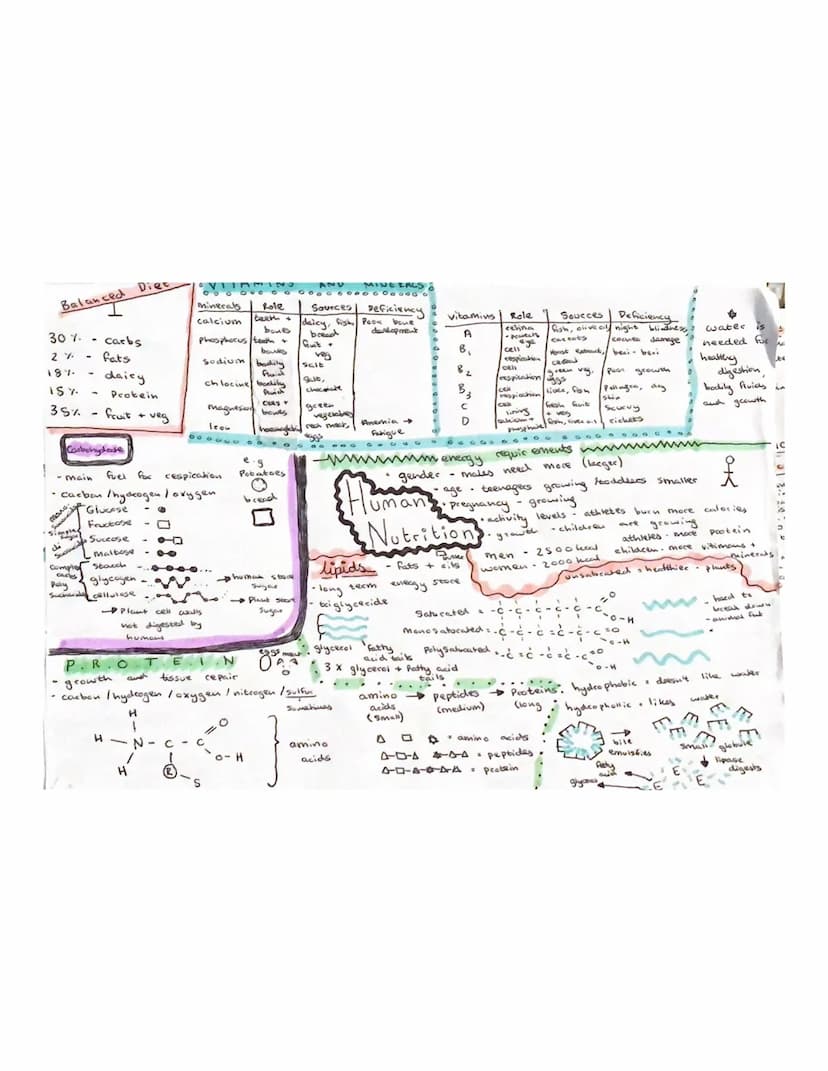 Balanced Diet
30% - carbs
2% - fats
18% - dairy
15% - Protein
35% - fruit + veg
VITAMINS AND MINERALS
minerals Role Sources Deficiency
calcium teeth + bones dairy, fish, bread Poor bone development
Phosphorus teeth + bones fruit + veg
sodium bodily fluid salt
chlorine bodily fluids salt,
magnesium bones green vegetables
Iron red meat, eggs Anemia → Fatigue
Vitamins Role Sources Deficiency
A retina eye fish, carrots night blindness, cornea damage
B1 cell respiration yeast extract, cereal beri-beri
B2 cell respiration green veg, eggs Poor growth
B3 cell respiration liver, fish, Pellagra, dry skin
C cell lining fresh fruit + veg scurvy
D calcium + phosphate fish, rickets
water is
needed for
healthy
digestion,
bodily fluids
and growth
Carbohydrate
- main fuel for respiration
- carbon/hydrogen/oxygen
e.g
Potatoes
bread
Glucose -
Fructose -
Sucrose -
maltose -
Starch
glycogen - → human store sugar
cellulose - → Plant store sugar
→ Plant cell walls
not digested by
humans
energy requirements
gender - males need more (larger)
- age - teenagers growing / toddlers smaller
- pregnancy - growing
activity levels - athletes burn more calories
- growth - children are growing
athletes - more protein
men - 2500kcal children - more vitamins + minerals
women - 2000kcal
Human
Nutrition
lipids - fats + oils
- long term energy store
- triglyceride
unsaturated = healthier - plants
Saturated = -C-C-C-C-C-C O
O-H
monosaturated = -C-C-C=C-C-C=O
O-H
Polysaturated = -C=C-C=C-C O
O-H
- hard to
break down
- animal fat
glycerol fatty
acid tails
3 x glycerol + Fatty acid
tails
PROTEIN
eggs meat
- growth and tissue repair
- carbon/hydrogen/oxygen/nitrogen/sulfur
sometimes
H
H - N - C - C O
O-H
H R S
amino
acids
amino → peptides → Proteins
acids (medium) (long
(small)
= amino acids
= peptides
= protein
hydrophobic = doesn't like water
hydrophilic = likes water
→ bile
emulsifies
small globule
↓ lipase
digests
E E E
fatty
acid